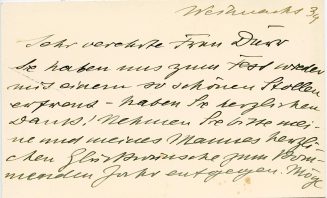 Weihnachts 3/9
Sehr verehrte Frau Dürr
Sie haben uns zum Fest wieder
mit einem so schönen Stollen
erfreut - haben Sie herzlichen
Dank! Nehmen Sie bitte mei-
ne und meines Mannes herzli-
chen Glückwünsche zum kom-
menden Jahr entgegen. Möge